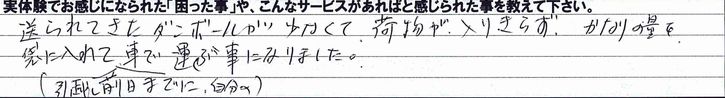 実体験でお感じになられた「困った事」や、こんなサービスがあればと感じられた事を教えて下さい。
送られてきたダンボールが少なくて、荷物が入りきらず、かなりの量を
袋に入れて車で運ぶ事になりました。
(引越し前日までに、自分で)